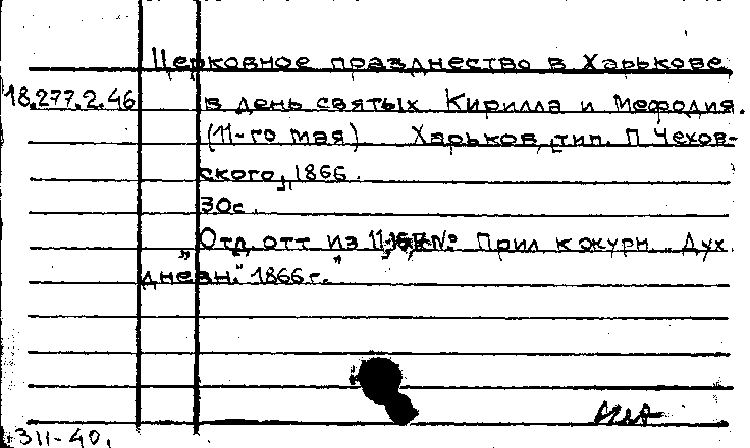 Церковное празднество в Харькове
18.277.2.46 в день святых Кирилла и Мефодия.
(11-го мая) Харьков, тип. П. Чехов-
ского, 1866.
30с.
Отд. отт из 11 № Прил к журн. „Дух.
дневн." 1866 г.
311-40.